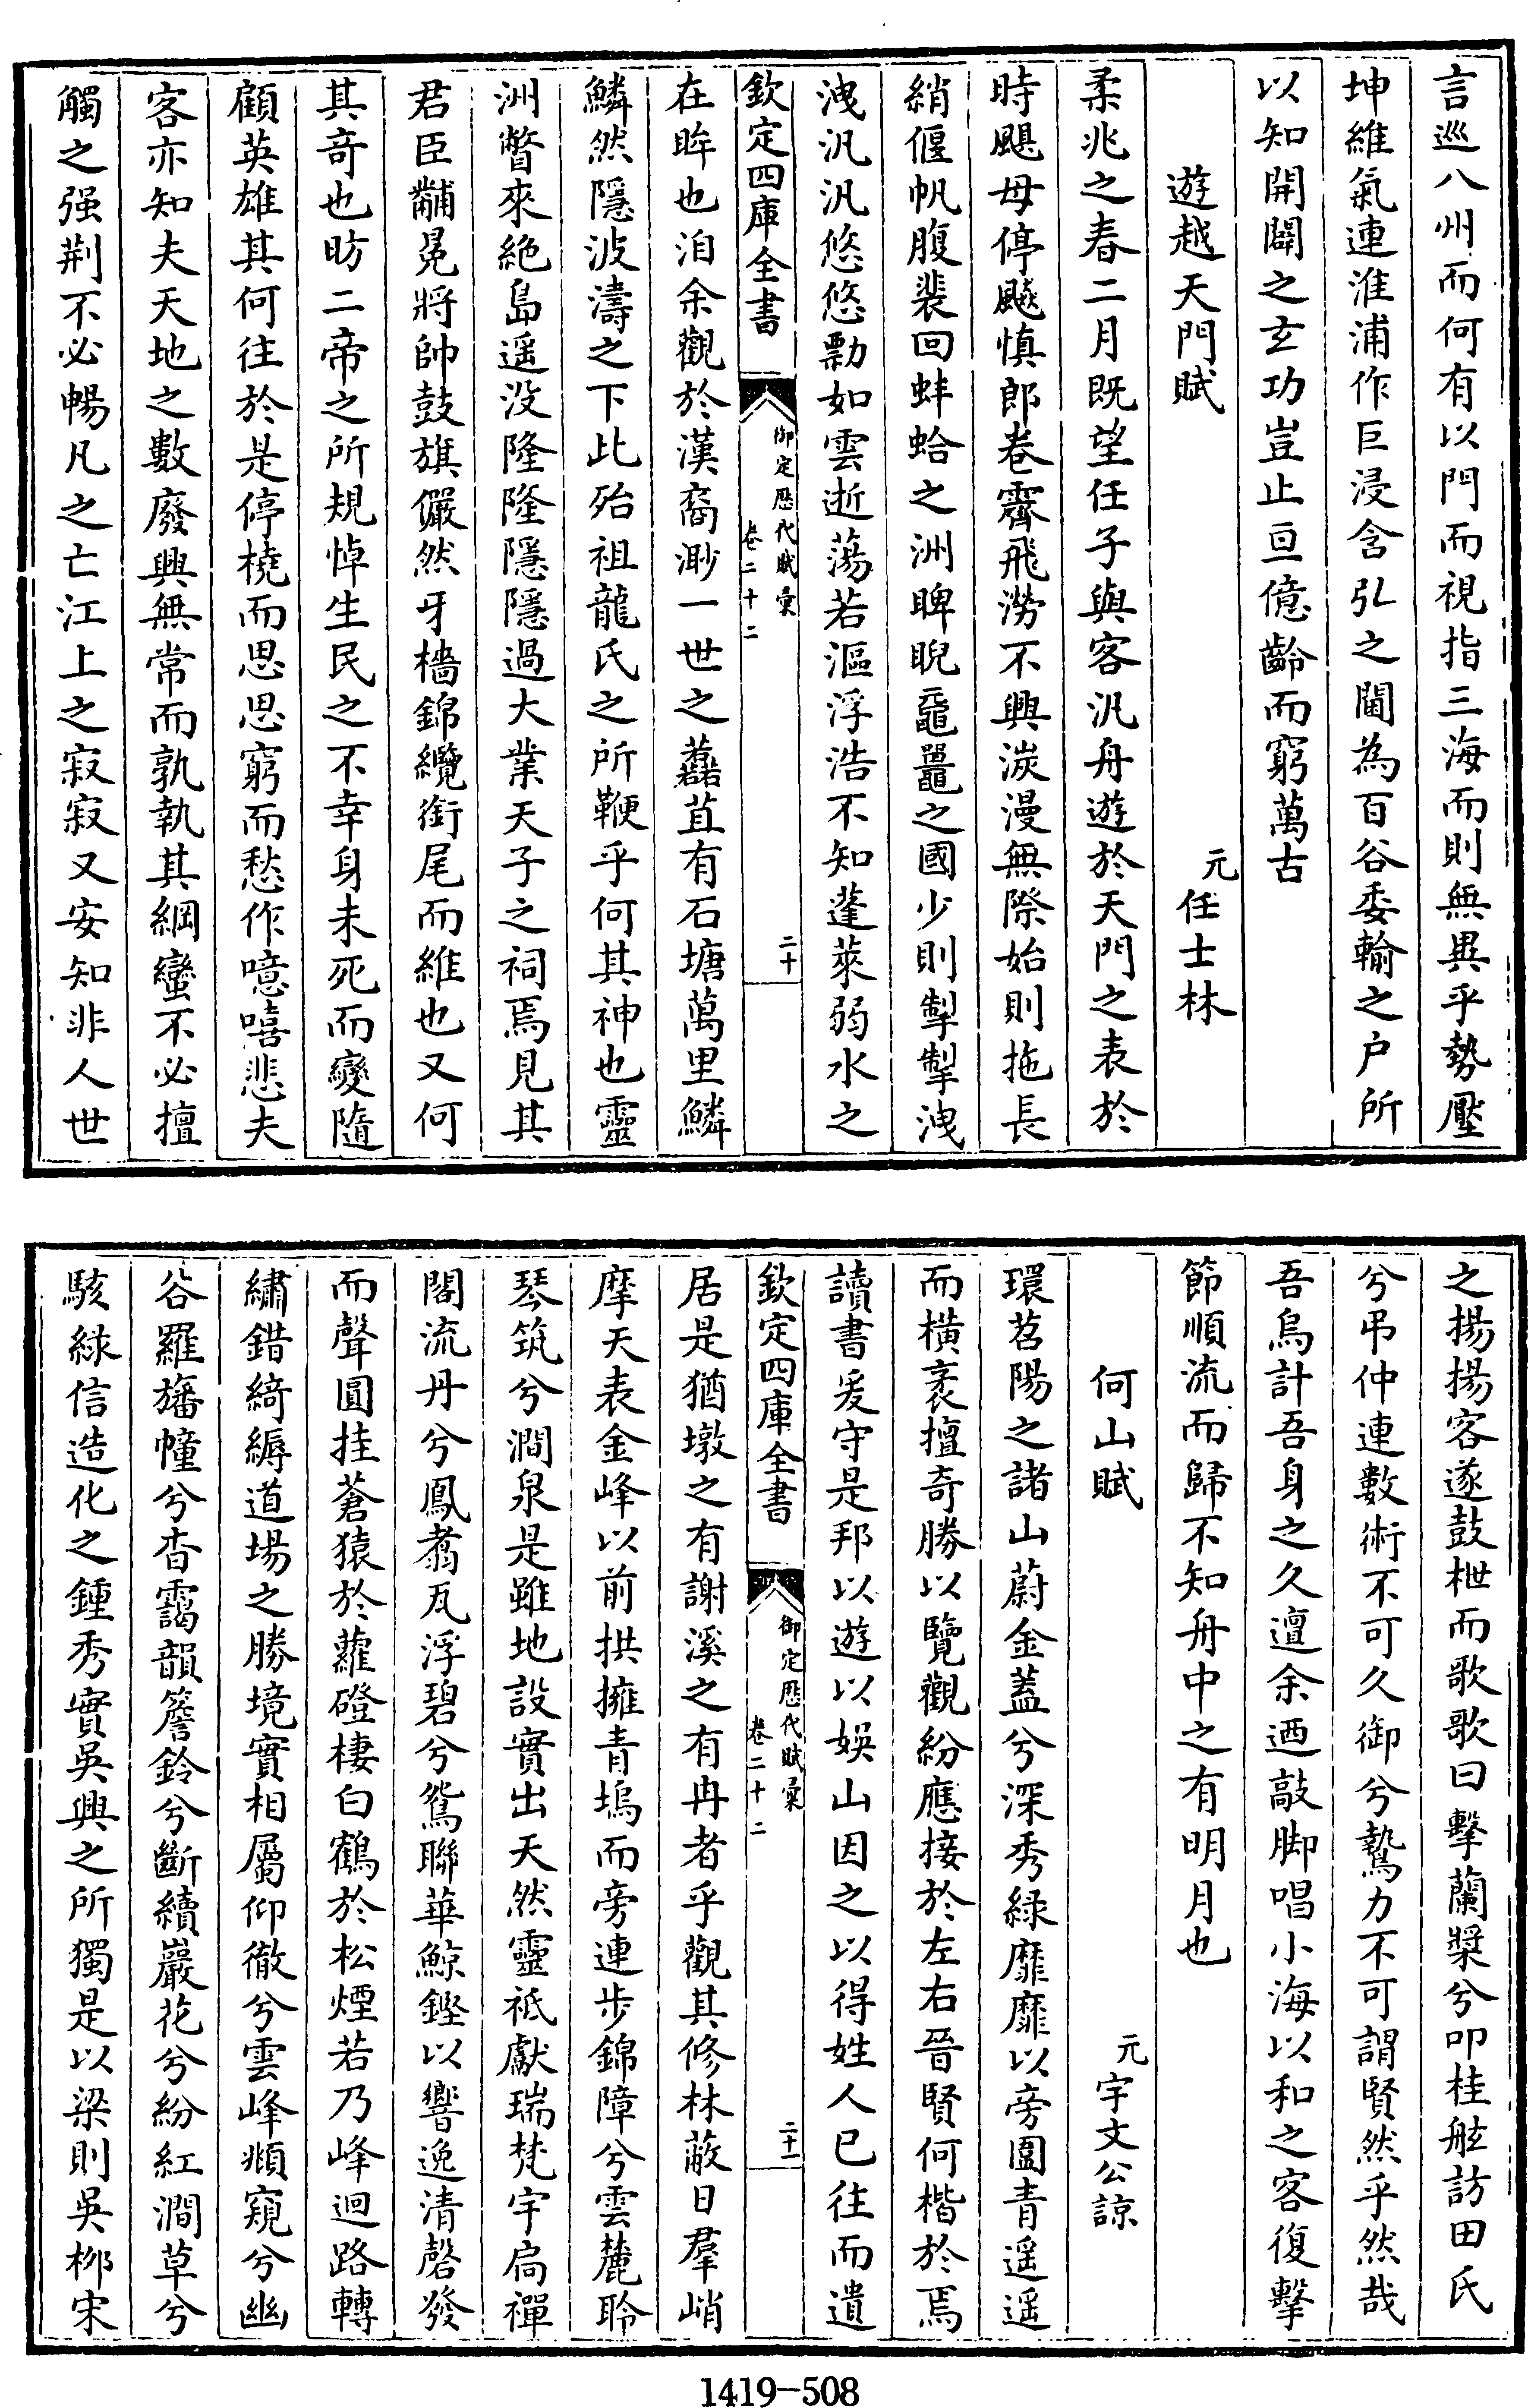 言巡八州而何有以門而視指三海而則無異乎勢壓
坤維氣連淮浦作巨浸含弘之閫為百谷委輸之户所
以知開闢之玄功豈止亘億齡而窮萬古
遊越天門賦
元任士林
柔兆之春二月既望任子與客汎舟遊於天門之表於
時颶母停颷慎郎卷霽飛澇不興淡漫無際始則拖長
綃偃帆腹裴回蚌蛤之洲睥睨黿鼉之國少則掣掣洩
洩汎汎悠悠勡如雲逝蕩若漚浮浩不知蓬萊弱水之
欽定四庫全書
御定歴代賦彙
卷二十二
二十
在眸也洎余觀於漢裔渺一世之蘁苴有石塘萬里鱗
鱗然隱波濤之下此殆祖龍氏之所鞭乎何其神也靈
洲瞥來絶島遥没隆隆隱隱過大業天子之祠焉見其
君臣黼冕將帥鼓旗儼然牙檣錦纜銜尾而維也又何
其奇也昉二帝之所規悼生民之不幸身未死而變隨
顧英雄其何往於是停橈而思思窮而愁作噫嘻悲夫
客亦知夫天地之數廢興無常而孰執其綱蠻不必擅
觸之强荆不必暢凡之亡江上之寂寂又安知非人世
之揚揚客遂鼓枻而歌歌曰擊蘭槳兮叩桂舷訪田氏
兮弔仲連數術不可久御兮兮鷙力不可謂賢然乎然哉
吾烏計吾身之久邅余迺敲脚唱小海以和之客復擊
節順流而歸不知舟中之有明月也
何山賦
元宇文公諒
環苕陽之諸山蔚金蓋兮深秀緑靡靡以旁圍青遥遥
而横袤擅奇勝以覽觀紛應接於左右晉賢何楷於焉
讀書爰守是邦以遊以娱山因之以得姓人已往而遺
欽定四庫全書
御定歴代賦彙
卷二十二
二十一
居是猶墩之有謝溪之有冉者乎觀其修林蔽日羣峭
摩天表金峰以前拱擁青塢而旁連步錦障兮雲麓聆
琴筑兮澗泉是雖地設實出天然靈祇獻瑞梵宇扃禪
閣流丹兮鳳翥瓦浮碧兮鴛聯華鯨鏗以響逸清磬發
而聲圓挂蒼猿於蘿磴棲白鶴於松煙若乃峰迴路轉
繡錯綺縟道場之勝境實相屬仰徹兮雲峰頫窺兮幽
谷羅旛幢兮杳靄韻簷鈴兮斷續巖花兮紛紅澗草兮
駭緑信造化之鍾秀實吳興之所獨是以梁則吳栁宋
1419-508